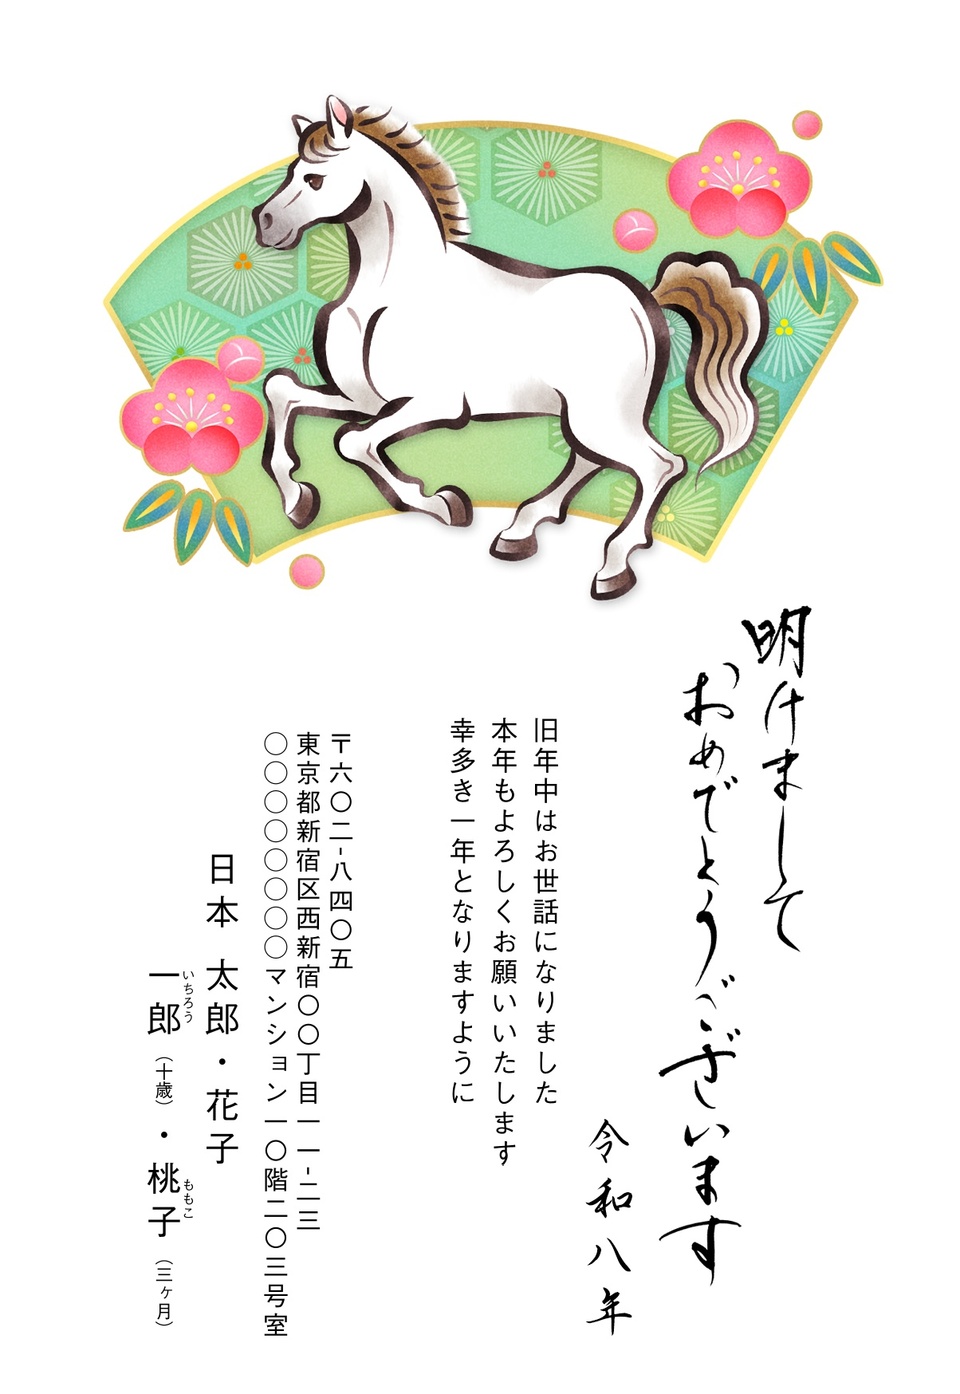 明けまして
おめでとうございます
令和八年
旧年中はお世話になりました
本年もよろしくお願いいたします
幸多き一年となりますように
〒六〇二-八四〇五
東京都新宿区西新宿〇〇丁目一一-二三
〇〇〇〇〇〇〇〇マンション一〇階二〇三号室
日本 太郎・花子
一郎(いちろう)(十歳)・桃子(ももこ)(三ヶ月)